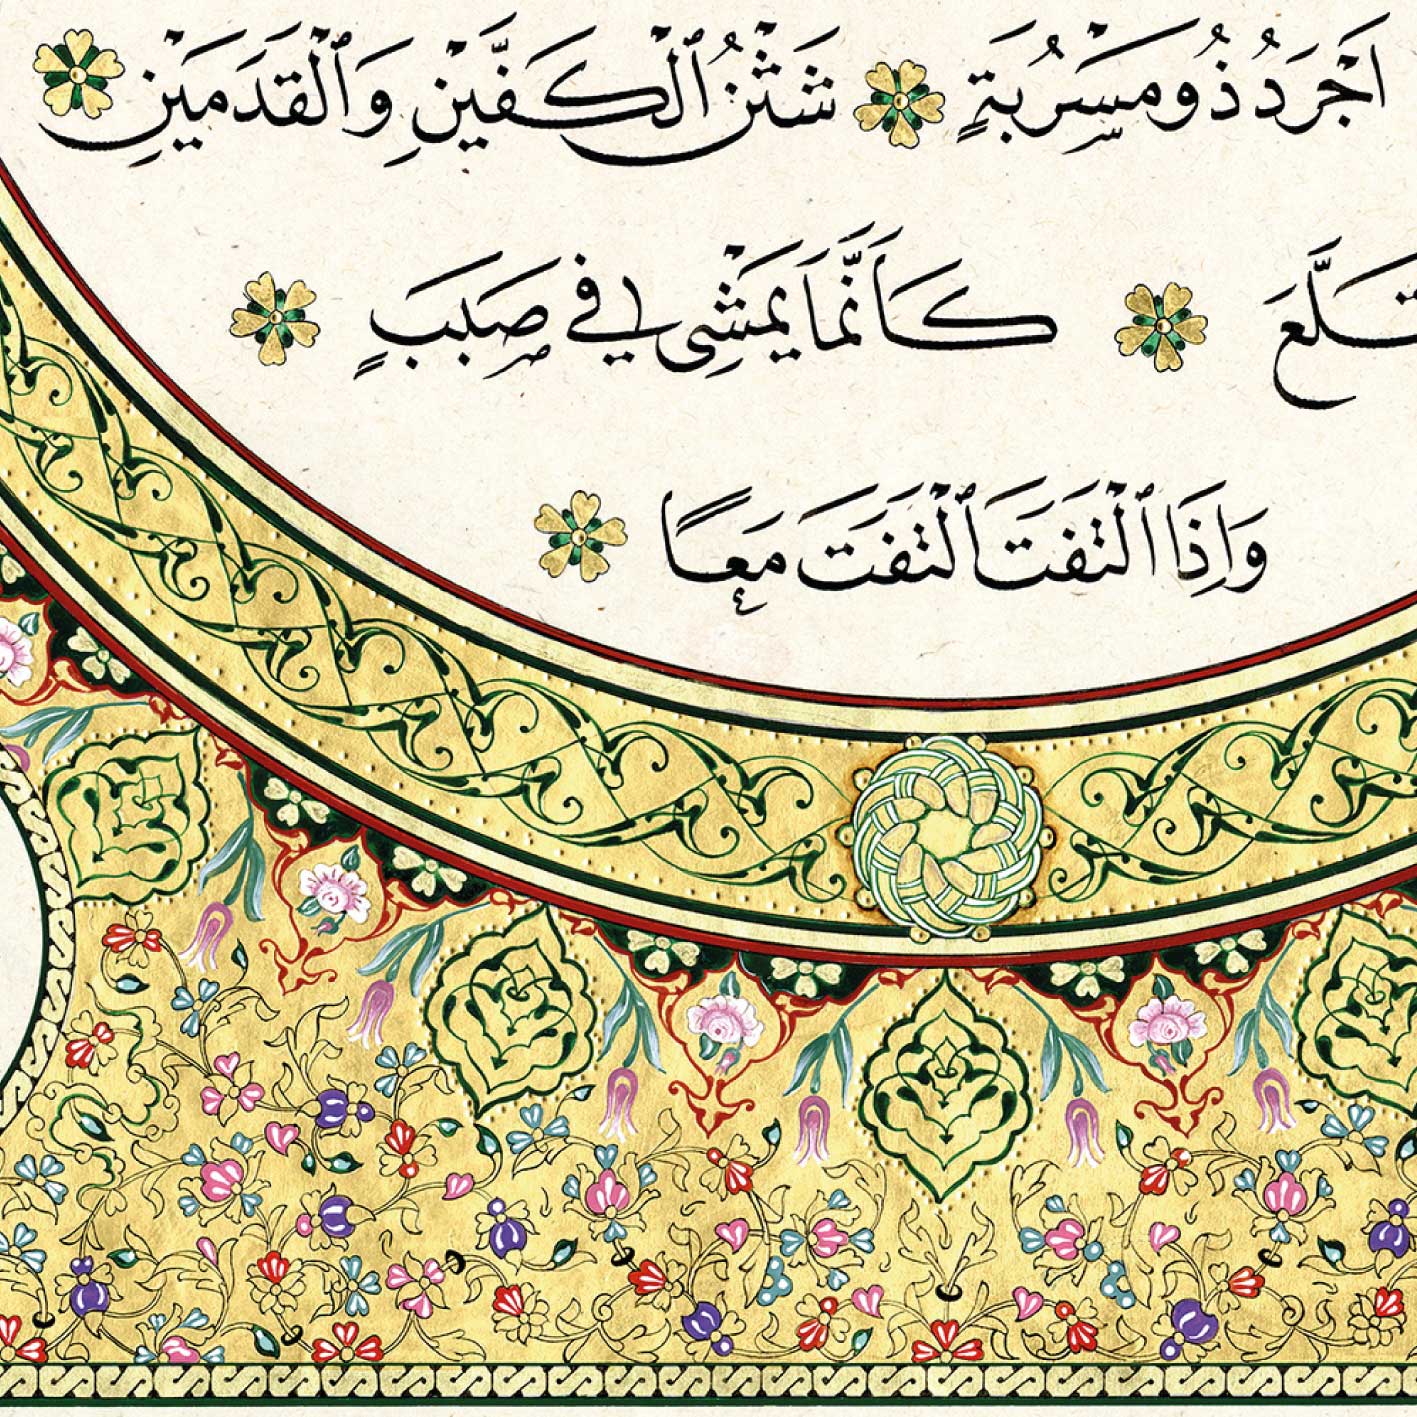 اَجْرَدُ ذُو مَسْرُبَةٍ شَثْنُ الْكَفَّيْنِ وَالْقَدَمَيْنِ
تَقَلَّعَ كَاَنَّمَا يَمْشِي فِي صَبَبٍ
وَاِذَا الْتَفَتَ الْتَفَتَ مَعًا